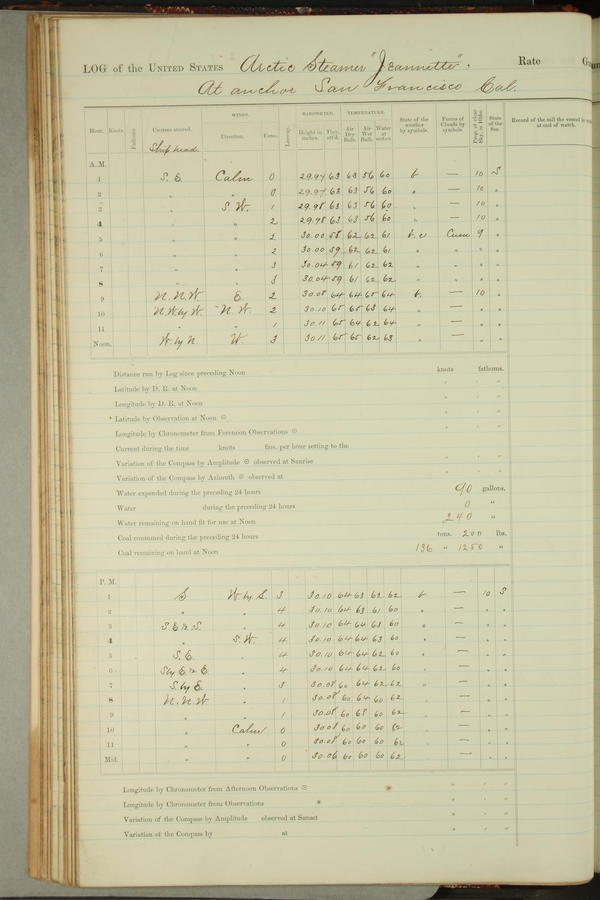 LOG of the UNITED STATES Arctic Steamer "Jeannette". Rate
At anchor San Francisco Cal.
WINDS. BAROMETER. TEMPERATURE.
Hour. Knots. Fathoms. Courses steered. Direction. Force. Leeway. Height in inches. Ther. att'd. Air Dry Bulb. Air Wet Bulb. Water at surface. State of the weather by symbols. Forms of Clouds by symbols. Prop. of clear Sky, in 10ths. State of the Sea. Record of the sail the vessel is under at end of watch.
Ship head
A. M.
1 S. E. Calm 0 29.97 63 63 56 60 b — 10 S
2 " " 0 29.97 63 63 56 60 " — 10 "
3 " S. W. 1 29.98 63 63 56 60 " — 10 "
4 " " 2 29.98 63 63 56 60 " — 10 "
5 " " 2 30.00 58 62 62 61 b.c Cum 9 "
6 " " 2 30.00 59 62 62 61 " " " "
7 " " 3 30.04 59 61 62 62 " " " "
8 " " 3 30.04 59 61 62 62 " " " "
9 N. N. W. E. 2 30.08 64 64 65 64 b. — 10 "
10 N. W. by W. N. W. 2 30.10 65 65 63 64 " — " "
11 " " 1 30.11 65 64 62 64 " — " "
Noon. W. by N. W. 3 30.11 65 65 62 63 " — " "
Distance run by Log since preceding Noon knots fathoms.
Latitude by D. R. at Noon ° ' "
Longitude by D. R. at Noon ° ' "
* Latitude by Observation at Noon ⊙ ° ' "
Longitude by Chronometer from Forenoon Observations ⊙ ° ' "
Current during the time knots fms. per hour setting to the
Variation of the Compass by Amplitude ⊙ observed at Sunrise ° ' "
Variation of the Compass by Azimuth ⊙ observed at ° ' "
Water expended during the preceding 24 hours 90 gallons.
Water during the preceding 24 hours 0 "
Water remaining on hand fit for use at Noon 240 "
Coal consumed during the preceding 24 hours tons. 200 lbs.
Coal remaining on hand at Noon 136 " 1250 "
P. M.
1 S W by S. 3 30.10 64 63 62 62 b — 10 S
2 " " 4 30.10 64 63 61 60 " — " "
3 S. E ½ S. " 4 30.10 64 64 63 60 " — " "
4 " S. W. 4 30.10 64 64 63 60 " — " "
5 S. E. " 4 30.10 64 64 62 60 " — " "
6 S by E ½ E. " 4 30.10 64 64 62 60 " — " "
7 S. by E. " 3 30.08 60 64 62 62 " — " "
8 N. N. W " 1 30.08 60 64 60 62 " — " "
9 " " 1 30.08 60 68 60 62 " — " "
10 " Calm 0 30.08 60 60 60 62 " — " "
11 " " 0 30.08 60 60 60 62 " — " "
Mid. " " 0 30.06 60 60 60 62 " — " "
Longitude by Chronometer from Afternoon Observations ⊙ ° ' "
Longitude by Chronometer from Observations * ° ' "
Variation of the Compass by Amplitude observed at Sunset ° ' "
Variation of the Compass by at ° ' "